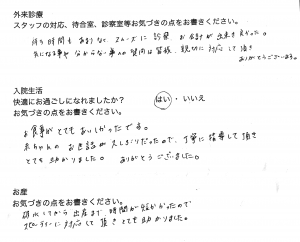 外来診療
スタッフの対応、待合室、診察室等お気づきの点をお書きください。
待ち時間もあまりなく、スムーズに診察、お会計が出来て良かった。
気になる事や分からない事への質問は皆様、親切に対応して頂き
ありがとうございます。
入院生活
快適にお過ごしになれましたか? はい・いいえ
お気づきの点をお書きください。
お食事がとてもおいしかったです。
赤ちゃんのお世話が久しぶりだったので、丁寧に指導して頂き
とても助かりました。 ありがとうございました。
お産
お気づきの点をお書きください。
破水してから出産まで時間が短かかったので
スピーディーに対応して頂きとても助かりました。